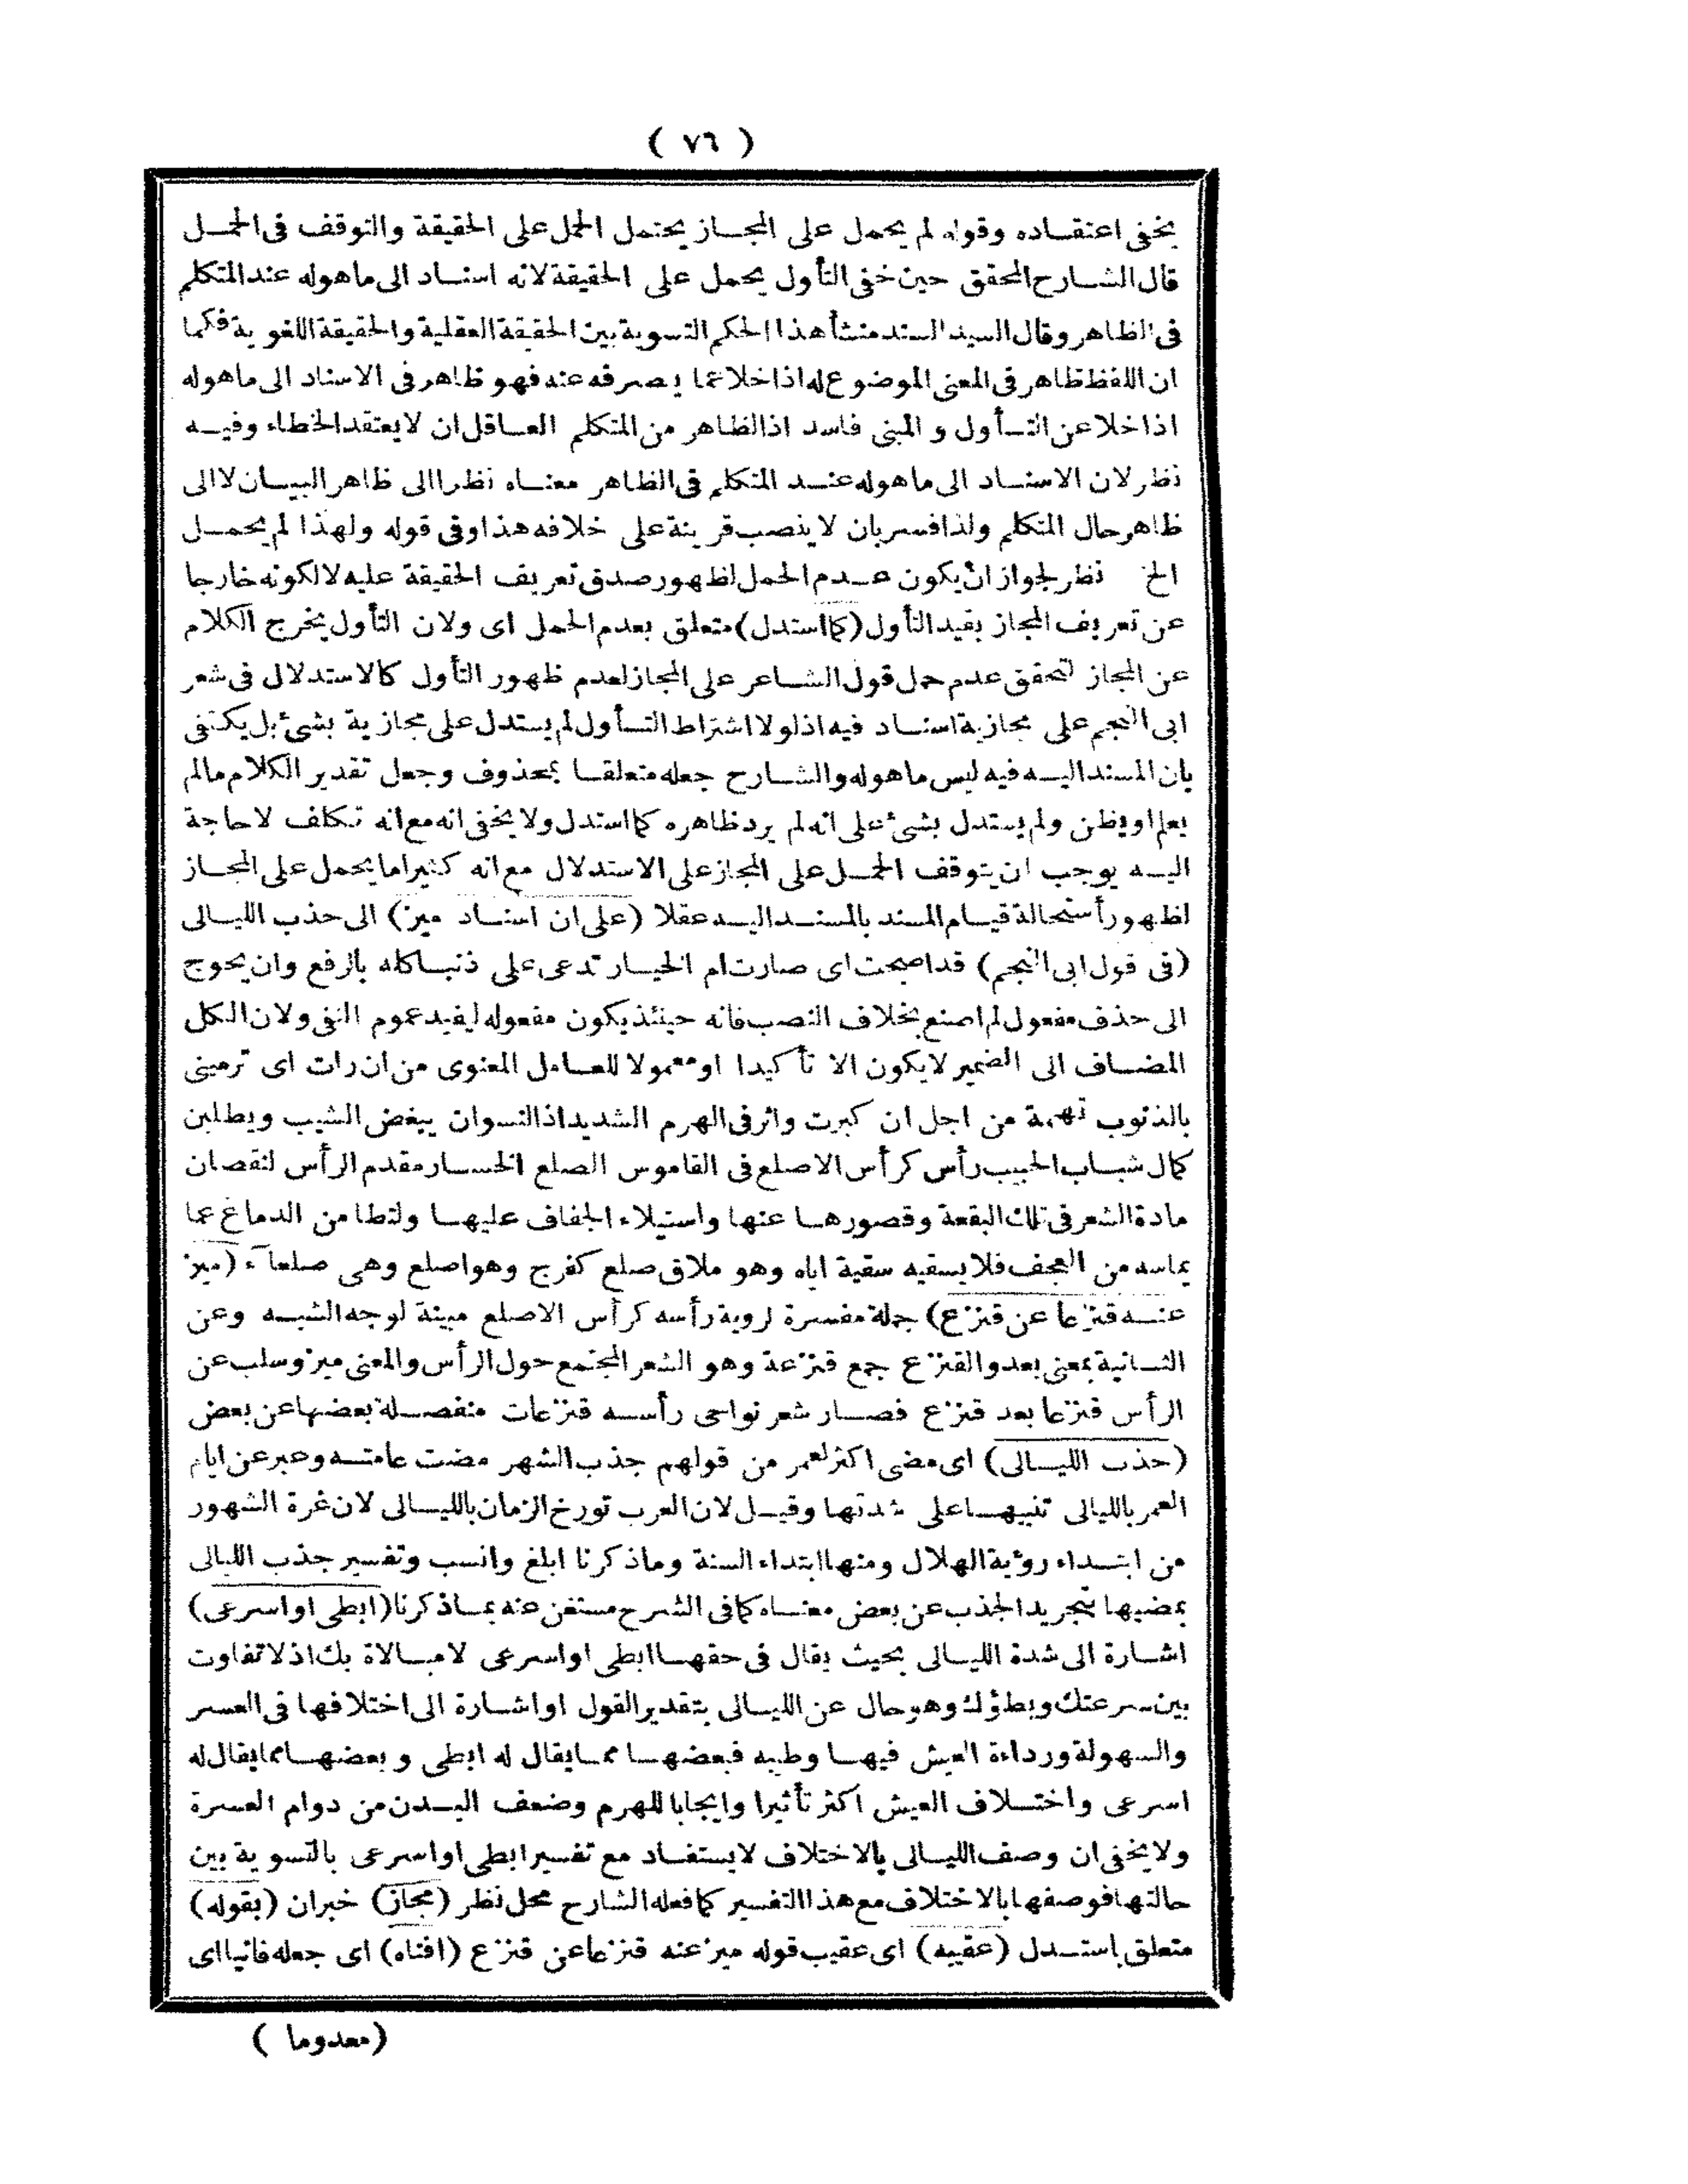 ( ٧٦ )
يخفى اعتقاده وقوله لم يحمل على المجاز يحتمل الحمل على الحقيقة والتوقف فى الحمل
قال الشارح المحقق حين خفى التأول يحمل على الحقيقة لانه اسناد الى ماهوله عند المتكلم
فى الظاهر وقال السيد السند منشأ هذا الحكم التسوية بين الحقيقة العقلية والحقيقة اللغوية فكما
ان اللفظ ظاهر فى المعنى الموضوع له اذا خلا عما يصرفه عنه فهو ظاهر فى الاسناد الى ماهوله
اذا خلا عن التأول و المبنى فاسد اذ الظاهر من المتكلم العاقل ان لا يعتقد الخطاء وفيه
نظر لان الاسناد الى ماهوله عند المتكلم فى الظاهر معناه نظرا الى ظاهر البيان لا الى
ظاهر حال المتكلم ولذا فسر بان لا ينصب قرينة على خلافه هذا وفى قوله ولهذا لم يحمل
الخ نظر لجواز ان يكون عدم الحمل لظهور صدق تعريف الحقيقة عليه لا لكونه خارجا
عن تعريف المجاز بقيد التأول (كما استدل) متعلق بعدم الحمل اى ولان التأول يخرج الكلام
عن المجاز لتحقق عدم حمل قول الشاعر على المجاز لعدم ظهور التأول كالاستدلال فى شعر
ابى النجم على مجازية اسناد فيه اذ لولا اشتراط التأول لم يستدل على مجازية بشئ بل يكتفى
بان المسند اليه فيه ليس ماهوله والشارح جعله متعلقا بمحذوف وجعل تقدير الكلام مالم
يعلم او يظن ولم يستدل بشئ على انه لم يرد ظاهره كما استدل ولا يخفى انه مع انه تكلف لا حاجة
اليه يوجب ان يتوقف الحمل على المجاز على الاستدلال مع انه كثيرا ما يحمل على المجاز
لظهور أستحالة قيام المسند بالمسند اليه عقلا (على ان اسناد ميز) الى حذب الليالى
(فى قول ابى النجم) قد اصبحت اى صارت ام الخيار تدعى على ذنبا كله بالرفع وان يحوج
الى حذف مفعول لم اصنع بخلاف النصب فانه حينئذ يكون مفعوله ليفيد عموم النفى ولان الكل
المضاف الى الضمير لا يكون الا تأكيدا او معمولا للعامل المعنوى من ان رات اى ترمينى
بالذنوب تهمة من اجل ان كبرت واثر فى الهرم الشديد اذ النسوان يبغض الشيب ويطلبن
كمال شباب الحبيب رأس كرأس الاصلع فى القاموس الصلع انحسار مقدم الرأس لنقصان
مادة الشعر فى تلك البقعة وقصورها عنها واستيلاء الجفاف عليها ولتطامن الدماغ عما
يماسه من القحف فلا يسقيه سقية اياه وهو ملاق صلع كفرح وهو اصلع وهى صلعآء (ميز
عنه قنزعا عن قنزع) جملة مفسرة لروية رأسه كرأس الاصلع مبينة لوجه الشبه وعن
الثانية بمعنى بعد والقنزع جمع قنزعة وهو الشعر المجتمع حول الرأس والمعنى ميز وسلب عن
الرأس قنزعا بعد قنزع فصار شعر نواحى رأسه قنزعات منفصلة بعضها عن بعض
(حذب الليالى) اى مضى اكثر لعمر من قولهم جذب الشهر مضت عامته وعبر عن ايام
العمر بالليالى تنبيها على شدتها وقيل لان العرب تورخ الزمان بالليالى لان غرة الشهور
من ابتداء رؤية الهلال ومنها ابتداء السنة وماذكرنا ابلغ وانسب وتفسير جذب الليالى
بمضيها بتجريد الجذب عن بعض معناه كما فى الشرح مستغن عنه بماذكرنا (ابطى او اسرعى)
اشارة الى شدة الليالى بحيث يقال فى حقها ابطى او اسرعى لا مبالاة بك اذ لا تفاوت
بين سرعتك وبطؤك وهو حال عن الليالى بتقدير القول او اشارة الى اختلافها فى العسر
والسهولة ورداءة العيش فيها وطيبه فبعضها مما يقال له ابطى و بعضها مما يقال له
اسرعى واختلاف العيش اكثر تأثيرا وايجابا للهرم وضعف البدن من دوام العسرة
ولا يخفى ان وصف الليالى بالاختلاف لا يستفاد مع تفسير ابطى او اسرعى بالتسوية بين
حالتها فوصفها بالاختلاف مع هذا التفسير كما فعله الشارح محل نظر (مجاز) خبران (بقوله)
متعلق باستدل (عقيبه) اى عقيب قوله ميز عنه قنزعا عن قنزع (افناه) اى جعله فانيا اى
(معدوما )